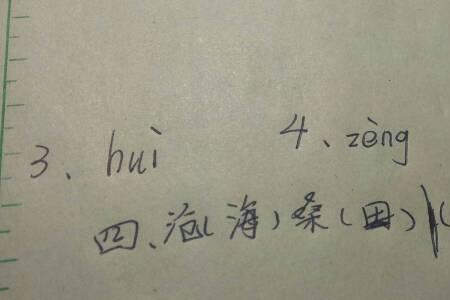 3、huì 4、zèng
四、沧(海)桑(田)(